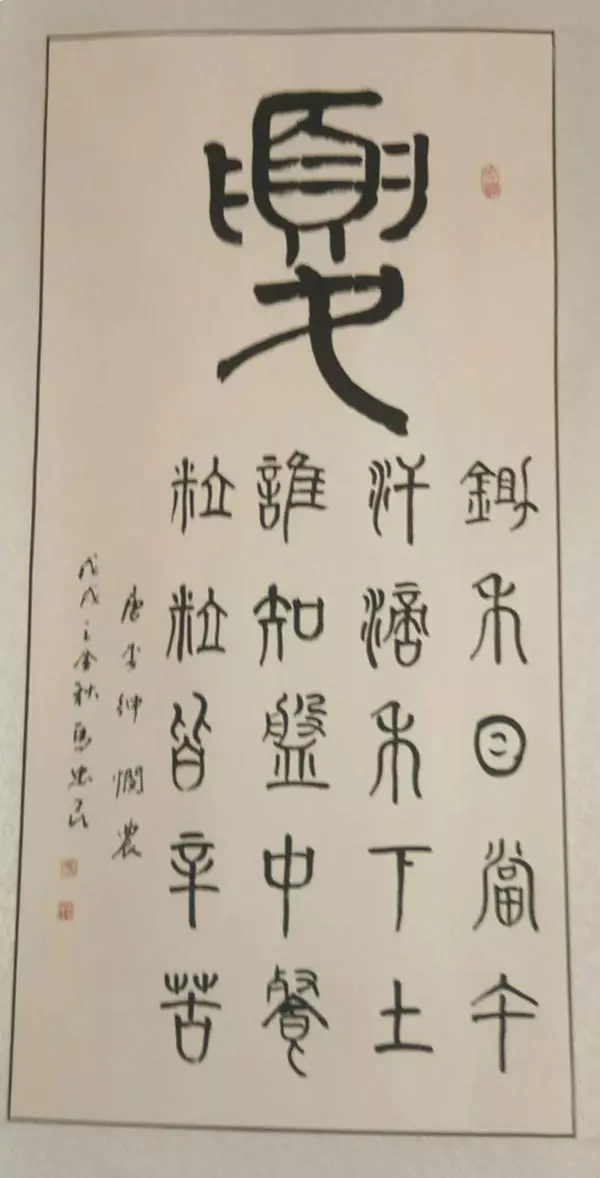 夏
鋤禾日當午
汗滴禾下土
誰知盤中餐
粒粒皆辛苦
唐李紳憫農
戊戌之金秋馬忠